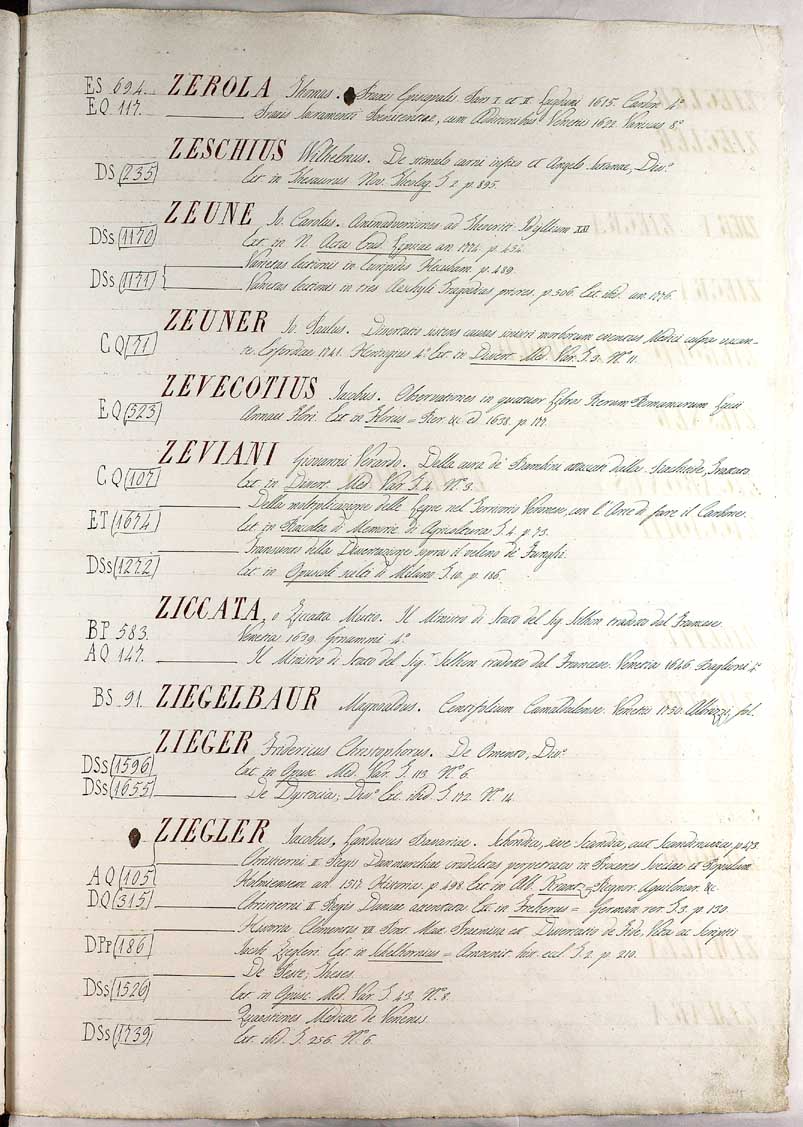 ES 694. ZEROLA Thomas. Praxis Episcopalis Pars I et II Lugduni 1615. Cardon 4°
EQ 117. Praxis Sacramenti Poenitentiae, cum Additionibus Venetiis 1622. Variscus 8°
ZESCHIUS Wilhelmus. De stimulo carni infixo et Angelo Satanae, Diss°
DS (235) Ext. in Thesaurus Nov. Theolog. T. 2. p. 895.
ZEUNE Io. Carolus. Animadversiones ad Theocriti Idyllium XXI
DSs (1170) Ext. in N. Acta Erud. Lipsiae an. 1774. p. 454.
Varietas lectionis in Euripidis Hecubam. p. 489.
DSs (1171) Varietas lectionis in tres Aeschyli Tragoedias priores. p. 306. Ext. ibid. an. 1776.
ZEUNER Io. Paulus. Dissertatio sistens causas sinistri morborum eventus Medici culpa vacan-
CQ (71) te. Erfordiae 1741. Heringius 4° Ext. in Dissert. Med. Var. T. 3. N° 11.
ZEVECOTIUS Jacobus. Observationes in quatuor Libros Rerum Romanarum Lucii
EQ (523) Annaei Flori. Ext. in Florus = Rer. &c. ed. 1638. p. 177.
ZEVIANI Giovanni Verardo. Della cura de' Bambini attaccati dalla Rachitide, Trattato
CQ (107) Ext. in Dissert. Med. Var. T. 4. N° 3.
Della moltiplicazione delle Legne nel Territorio Veronese, con l'Arte di fare il Carbone.
ET (1674) Ext. in Raccolta di Memorie di Agricoltura T. 4. p. 73.
Transunto della Dissertazione sopra il veleno de' Funghi.
DSs (1272) Ext. in Opuscoli scelti di Milano T. 10. p. 186.
ZICCATA, o Zccatta Marco. Il Ministro di Stato del Sig. Silhon tradotto dal Francese.
BP 583. Venetia 1639. Ginammi 4°
AQ 147. Il Ministro di Stato del Sig.r Silhon tradotto dal Francese. Venetia 1646. Baglioni 4°
BS 91. ZIEGELBAUR Magnoaldus. Centifolium Camaldulense. Venetiis 1750. Albrizzi, fol.
ZIEGER Fridericus Christophorus. De Omento, Diss°
DSs (1596) Ext. in Opusc. Med. Var. T. 113. N° 6.
DSs (1655) De Dystocia; Diss° Ext. ibid. T. 172. N° 14.
ZIEGLER Jacobus, Landavus Bavariae. Schondia, sive Scandia, aut Scandinavia, p. 473.
Christierni II Regis Danmarchiae crudelitas perpetrata in Proceres Sveciae et Populum
AQ (105) Holmiensem an. 1517. Historia. p. 498. Ext. in Alb. Krantz = Regnor. Aquilonar. &c.
DQ (315) Christierni II Regis Daniae Ext. in Freherus = German. rer. T. 3. p. 150.
Historia Clementis VII Pont. Max. et Dissertatio de Fide, Vita ac Scriptis
DPp (186) Jacob Ziegleri. Ext. in Schelhornius = Amoenit. hist. eccl. T. 2. p. 210.
De Peste; Theses.
DSs (1526) Ext. in Opusc. Med. Var. T. 43. N° 8.
Quaestiones Medicae de Venenis.
DSs (1739) Ext. ibid. T. 256. N° 6.